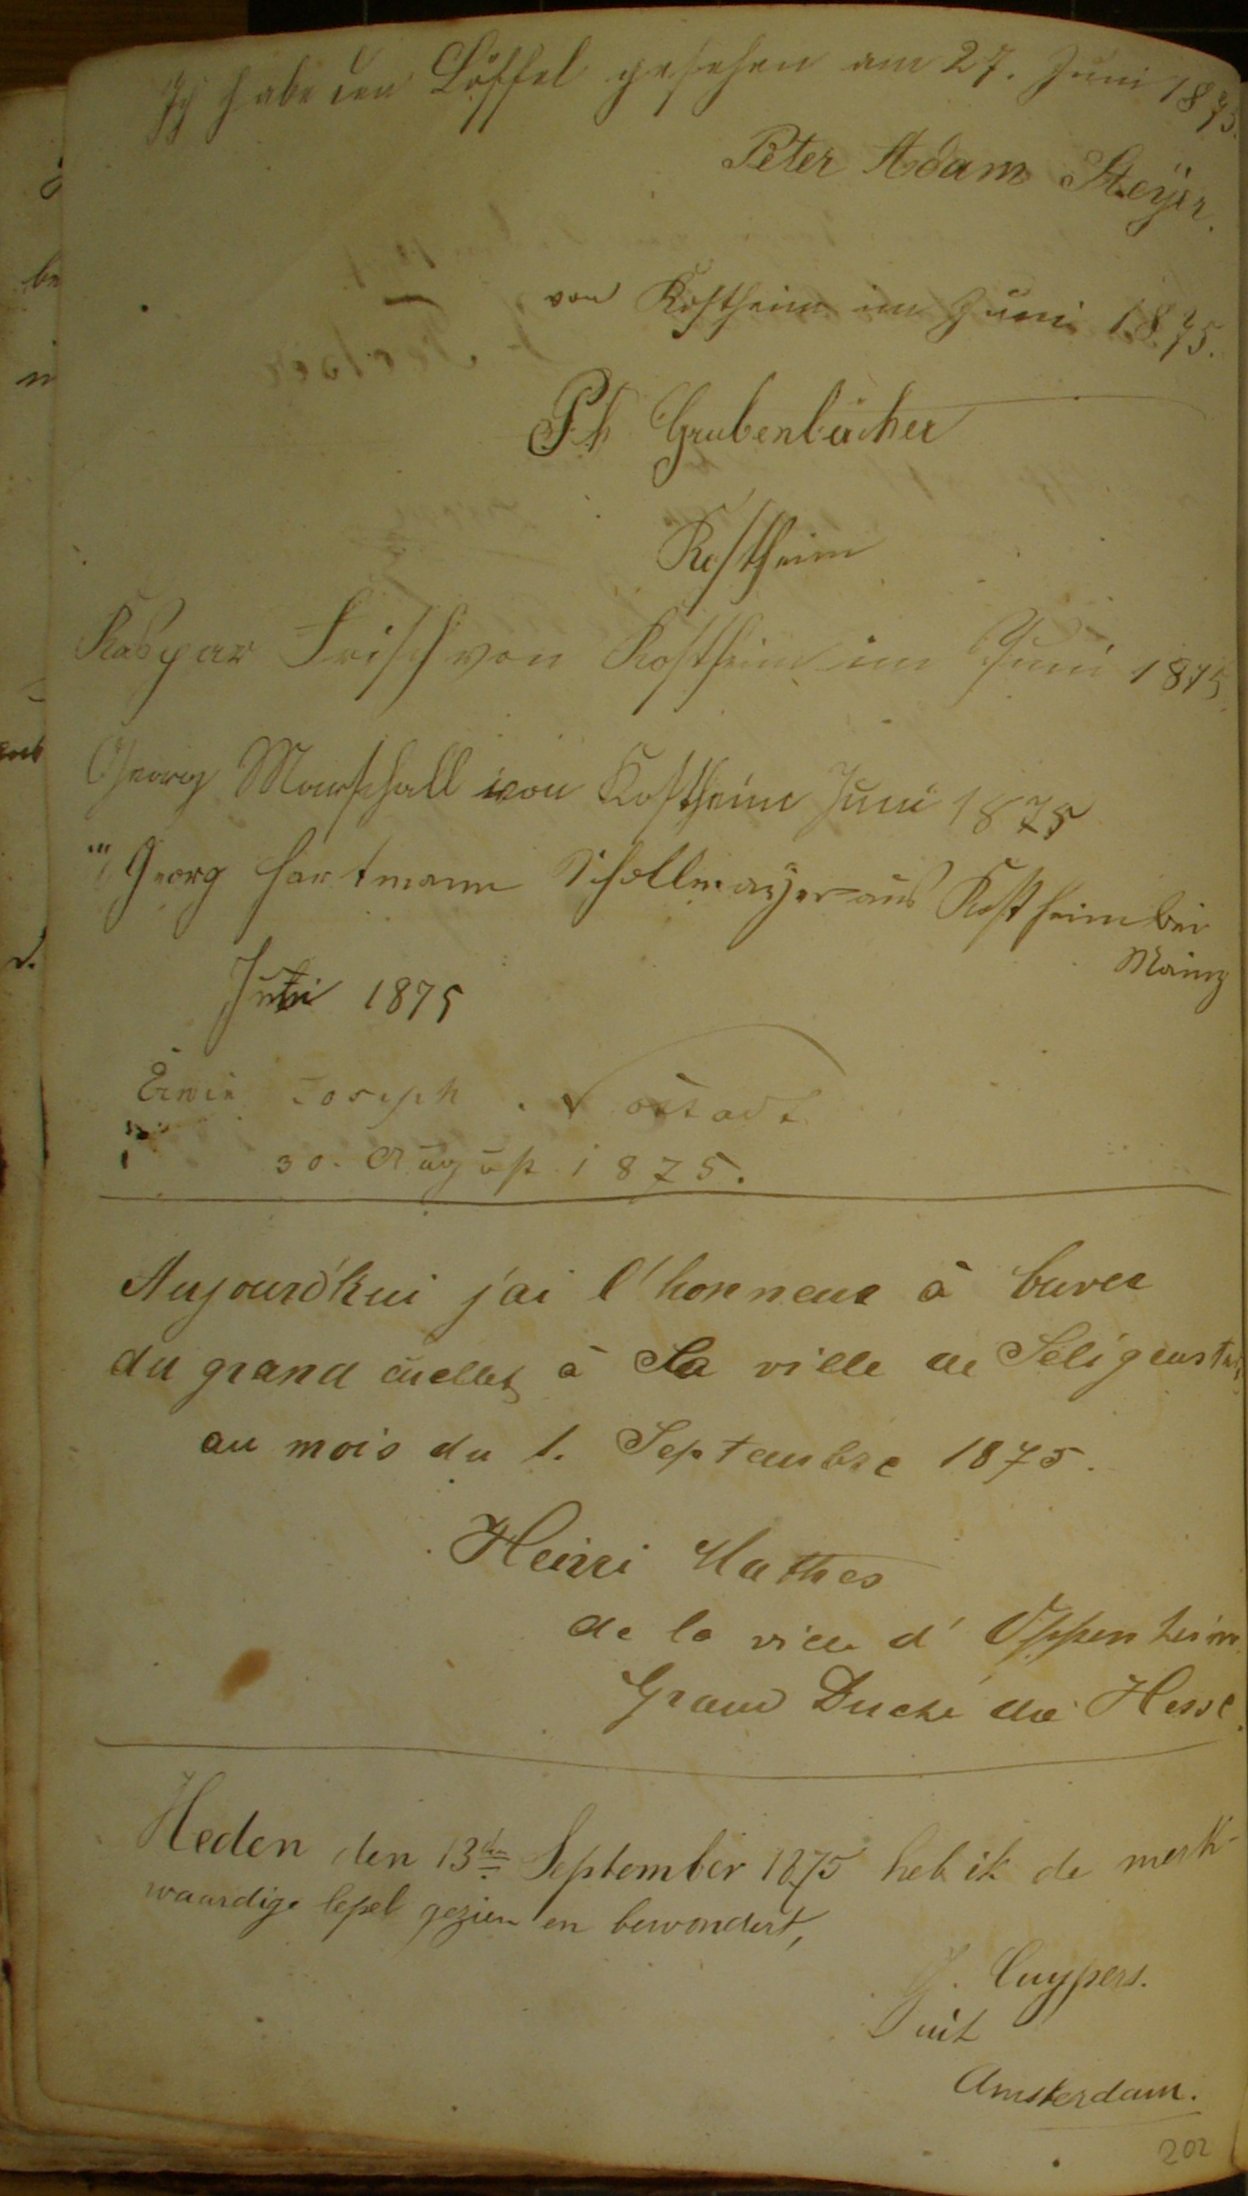 Ich habe den Löffel gesehen am 27. Juni 1875.
Peter Adam Steÿer.
von Kostheim im Juni 1875.
Ph Grubenbächer
Kostheim
Kaspar Frisch von Kostheim im Juni 1875
Georg Marschall von Kostheim Juni 1875
"' Georg Hartmann Schollmayer aus Kostheim bei
Mainz
Juni 1875
Joseph
30. August 1875.
Aujourd'hui j'ai l'honneur à buver
du grand cuellet à la ville de Seligenstadt
au mois du 1. Septembre 1875.
Henri Mathes
de la ville d'Oppenheim
Grand Duché de Hesse.
Heden den 13den September 1875 heb ik de merk-
waardige lepel gezien en bewondert,
J. Cuypers.
uit
Amsterdam.
202